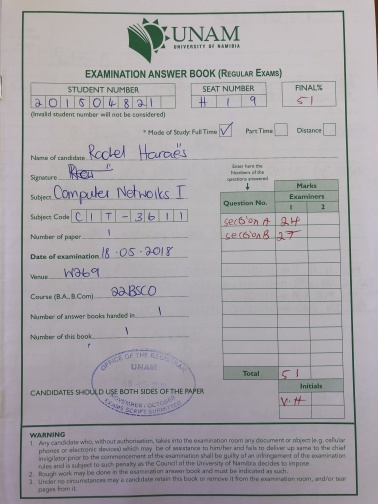 UNAM
UNIVERSITY OF NAMIBIA
EXAMINATION ANSWER BOOK (REGULAR EXAMS)
STUDENT NUMBER
201504821
(Invalid student number will not be considered)
SEAT NUMBER
H19
FINAL%
51
* Mode of Study: Full Time ✓ Part Time Distance
Name of candidate Rachel Haraës
Signature
Subject Computer Networks I
Subject Code CIT-3611
Number of paper 1
Date of examination 18.05.2018
Venue W269
Course (B.A., B.Com) 22BSCO
Number of answer books handed in 1
Number of this book 1
Enter here the Numbers of the questions answered
Marks
Question No. Examiners
1 2
section A 24
section B 27
Total 51
Initials
V.H
OFFICE OF THE REGISTRAR
UNAM
NOVEMBER / OCTOBER
EXAMS SCRIPT SUBMITTED
CANDIDATES SHOULD USE BOTH SIDES OF THE PAPER
WARNING
1. Any candidate who, without authorisation, takes into the examination room any document or object (e.g. cellular
phones or electronic devices) which may be of assistance to him/her and fails to deliver up same to the chief
invigilator prior to the commencement of the examination shall be guilty of an infringement of the examination
rules and is subject to such penalty as the Council of the University of Namibia decides to impose.
2. Rough work may be done in the examination answer book and must be indicated as such.
3. Under no circumstances may a candidate retain this book or remove it from the examination room, and/or tear
pages from it.